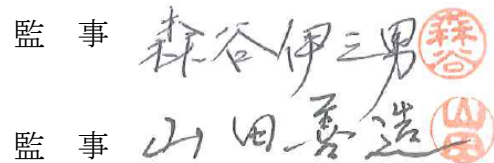 監 事 森谷伊三男 森谷
監 事 山田善造 山田